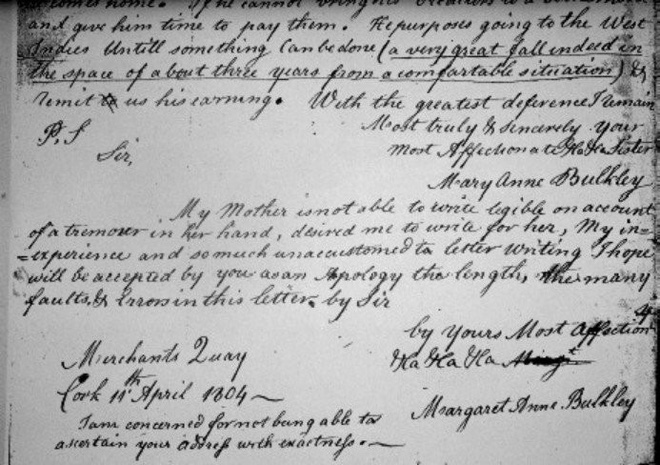 comes home.
and give him time to pay them. He purposes going to the West
Indies Untill something Can be done (a very great fall indeed in
the space of about three years from a comfortable situation) &
remit to us his earning. With the greatest deference I remain
Most truly & Sincerely your
P.S
most Affectionate &a &a Sister
Sir,
Mary Anne Bulkley
My Mother is not able to write legible on account
of a tremour in her hand, desired me to write for her, My in=
=experience and so much unaccustomed to letter Writing I hope
will be accepted by you as an Apology the length, the many
faults, & Errors in this letter. by Sir
by Yours Most Affection
&a &a &a
Merchants Quay
Cork 11th April 1804
Margaret Anne Bulkley
I am concerned for not being able to
ascertain your address with exactness.